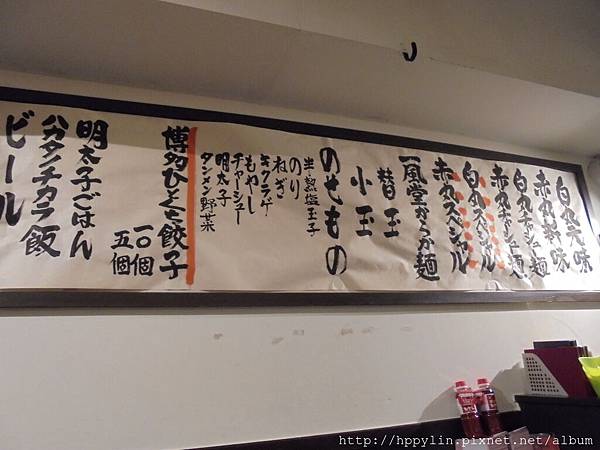 白丸元味
赤丸新味
白丸チャーシュー麺
赤丸チャーシュー麺
白丸スペシャル
赤丸スペシャル
一風堂からか麺
替玉
小玉
のせもの
半熟塩玉子
のり
ねぎ
キクラゲ
もやし
チャーシュー
明太子
タンメン野菜
博多ひとくち餃子
一〇個
五個
明太子ごはん
ハカタチカラ飯
ビール
http://hppylin.pixnet.net/album